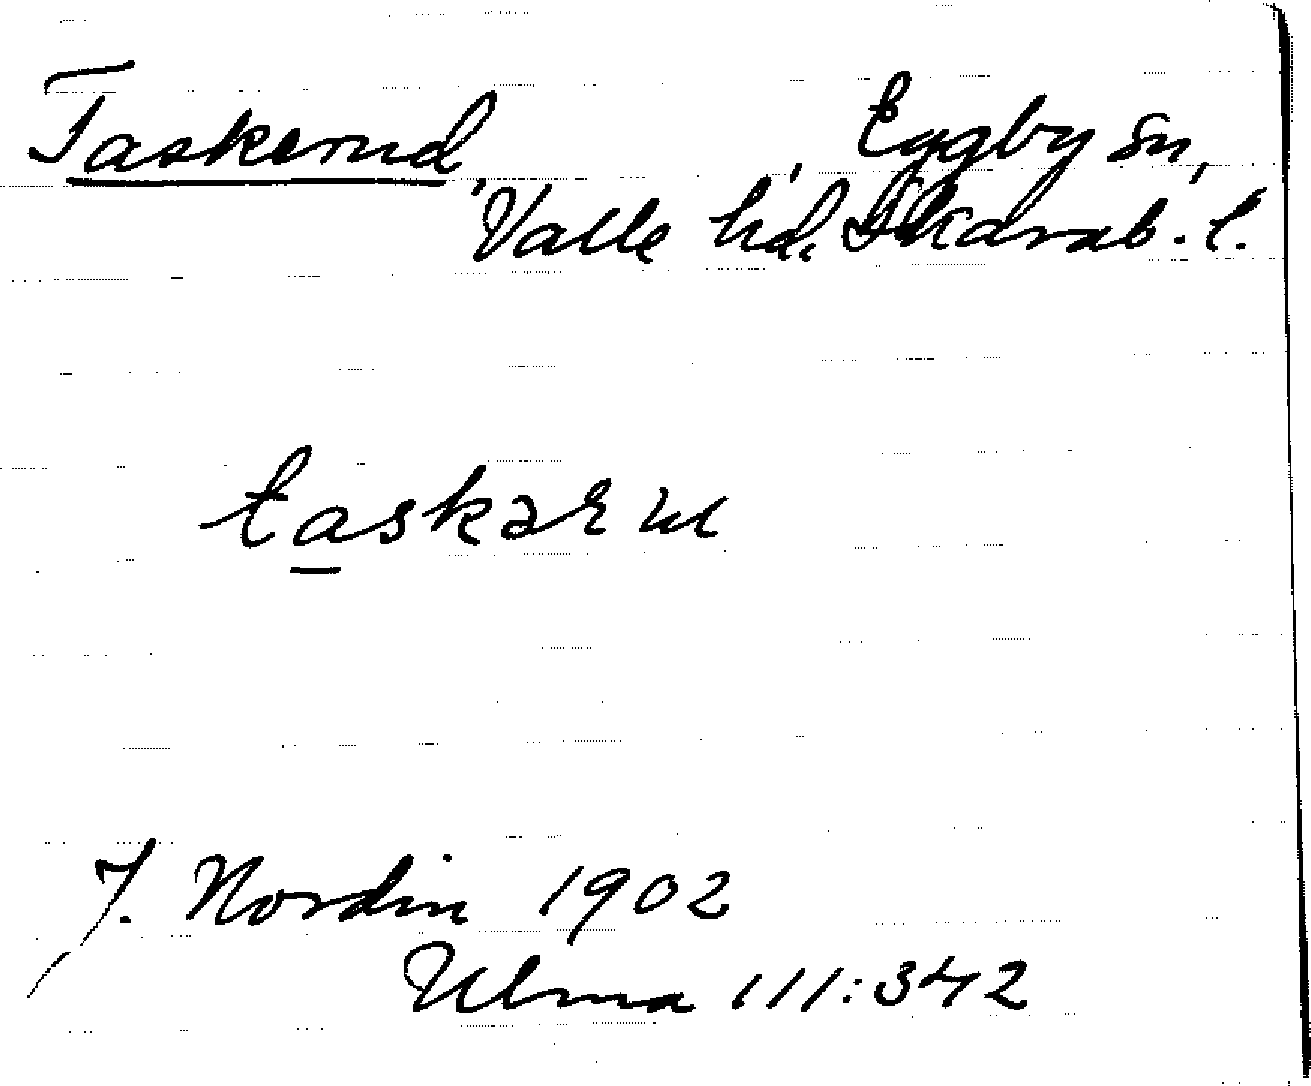 Taskerud Eggby sn,
Valle hd, Skarab. l.
taskəꞧ ɯ
J. Nordin 1902
Ulma 111:342